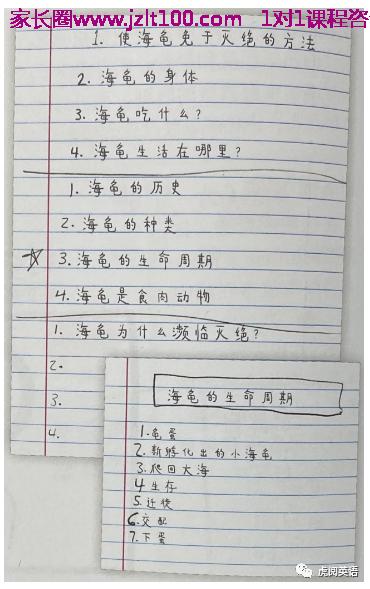 家长圈www.jzlt100.com 1对1课程咨
1. 使海龟免于灭绝的方法
2. 海龟的身体
3. 海龟吃什么?
4. 海龟生活在哪里?
1. 海龟的历史
2. 海龟的种类
☆ 3. 海龟的生命周期
4. 海龟是食肉动物
1. 海龟为什么濒临灭绝?
2.
3.
4.
海龟的生命周期
1. 龟蛋
2. 新孵化出的小海龟
3. 爬回大海
4 生存
5. 迁徙
6. 交配
7. 下蛋
虎阅英语